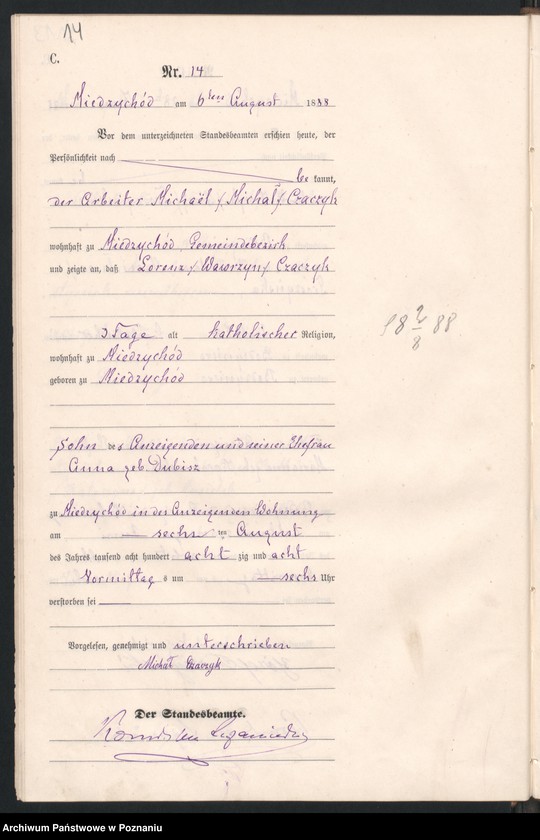 14
C.
Nr. 14
Miedzychód am 6ten August 1888
Vor dem unterzeichneten Standesbeamten erschien heute, der
Persönlichkeit nach
be kannt,
der Arbeiter Michaël /Michał/ Czaczyk
wohnhaft zu Miedzychód, Gemeindebezirk
und zeigte an, daß Lorenz /Wawrzyn/ Czaczyk
3 Tage alt katholischer Religion,
wohnhaft zu Miedzychód
geboren zu Miedzychód
Sohn des Anzeigenden und seiner Ehefrau
Anna geb. Dubisz
zu Miedzychód in der Anzeigenden Wohnung
am sechsten August
des Jahres tausend acht hundert acht zig und acht
Vormittag s um sechs Uhr
verstorben sei
Vorgelesen, genehmigt und unterschrieben
Michał Czaczyk
Der Standesbeamte.
Archiwum Państwowe w Poznaniu